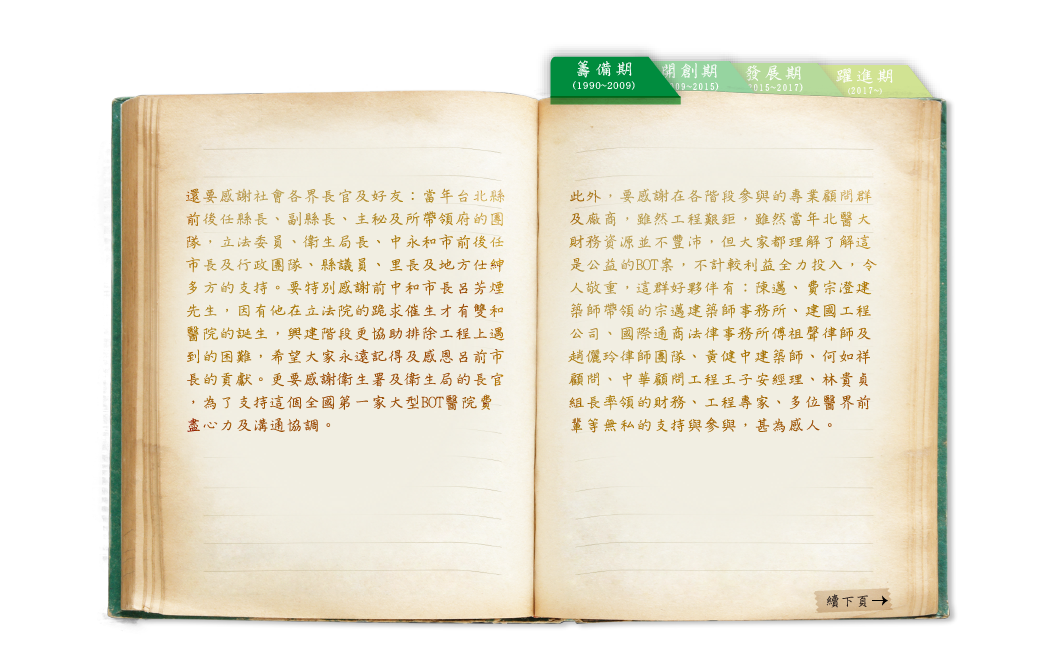 籌備期
(1990~2009)
開創期
009~2015)
發展期
2015~2017)
躍進期
(2017~)
還要感謝社會各界長官及好友：當年台北縣
前後任縣長、副縣長、主秘及所帶領府的團
隊，立法委員、衛生局長、中永和市前後任
市長及行政團隊、縣議員、里長及地方仕紳
多方的支持。要特別感謝前中和市長呂芳煙
先生，因有他在立法院的跪求催生才有雙和
醫院的誕生，興建階段更協助排除工程上遇
到的困難，希望大家永遠記得及感恩呂前市
長的貢獻。更要感謝衛生署及衛生局的長官
，為了支持這個全國第一家大型BOT醫院費
盡心力及溝通協調。
此外，要感謝在各階段參與的專業顧問群
及廠商，雖然工程艱鉅，雖然當年北醫大
財務資源並不豐沛，但大家都理解了解這
是公益的BOT案，不計較利益全力投入，令
人敬重，這群好夥伴有：陳邁、費宗澄建
築師帶領的宗邁建築師事務所、建國工程
公司、國際通商法律事務所傅祖聲律師及
趙儷玲律師團隊、黃健中建築師、何如祥
顧問、中華顧問工程王子安經理、林貴貞
組長率領的財務、工程專家、多位醫界前
輩等無私的支持與參與，甚為感人。
續下頁→